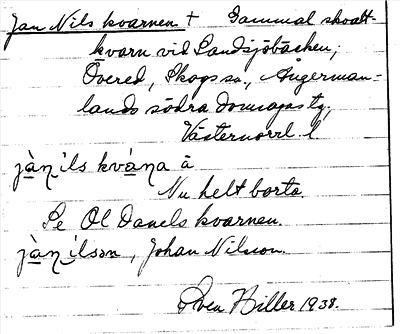 Jan Nils kvarnen + Gammal skvalt-
kvarn vid Landsjöbäcken,
Övered, Skogs sn, Ångerman-
lands södra domsagas tg,
Västernorrl. l
jàn̥ils kvàna å
Nu helt borta.
Se Ol Danels kvarnen.
jàn̥ilsən, Johan Nilsson.
Sven Hiller 1938.